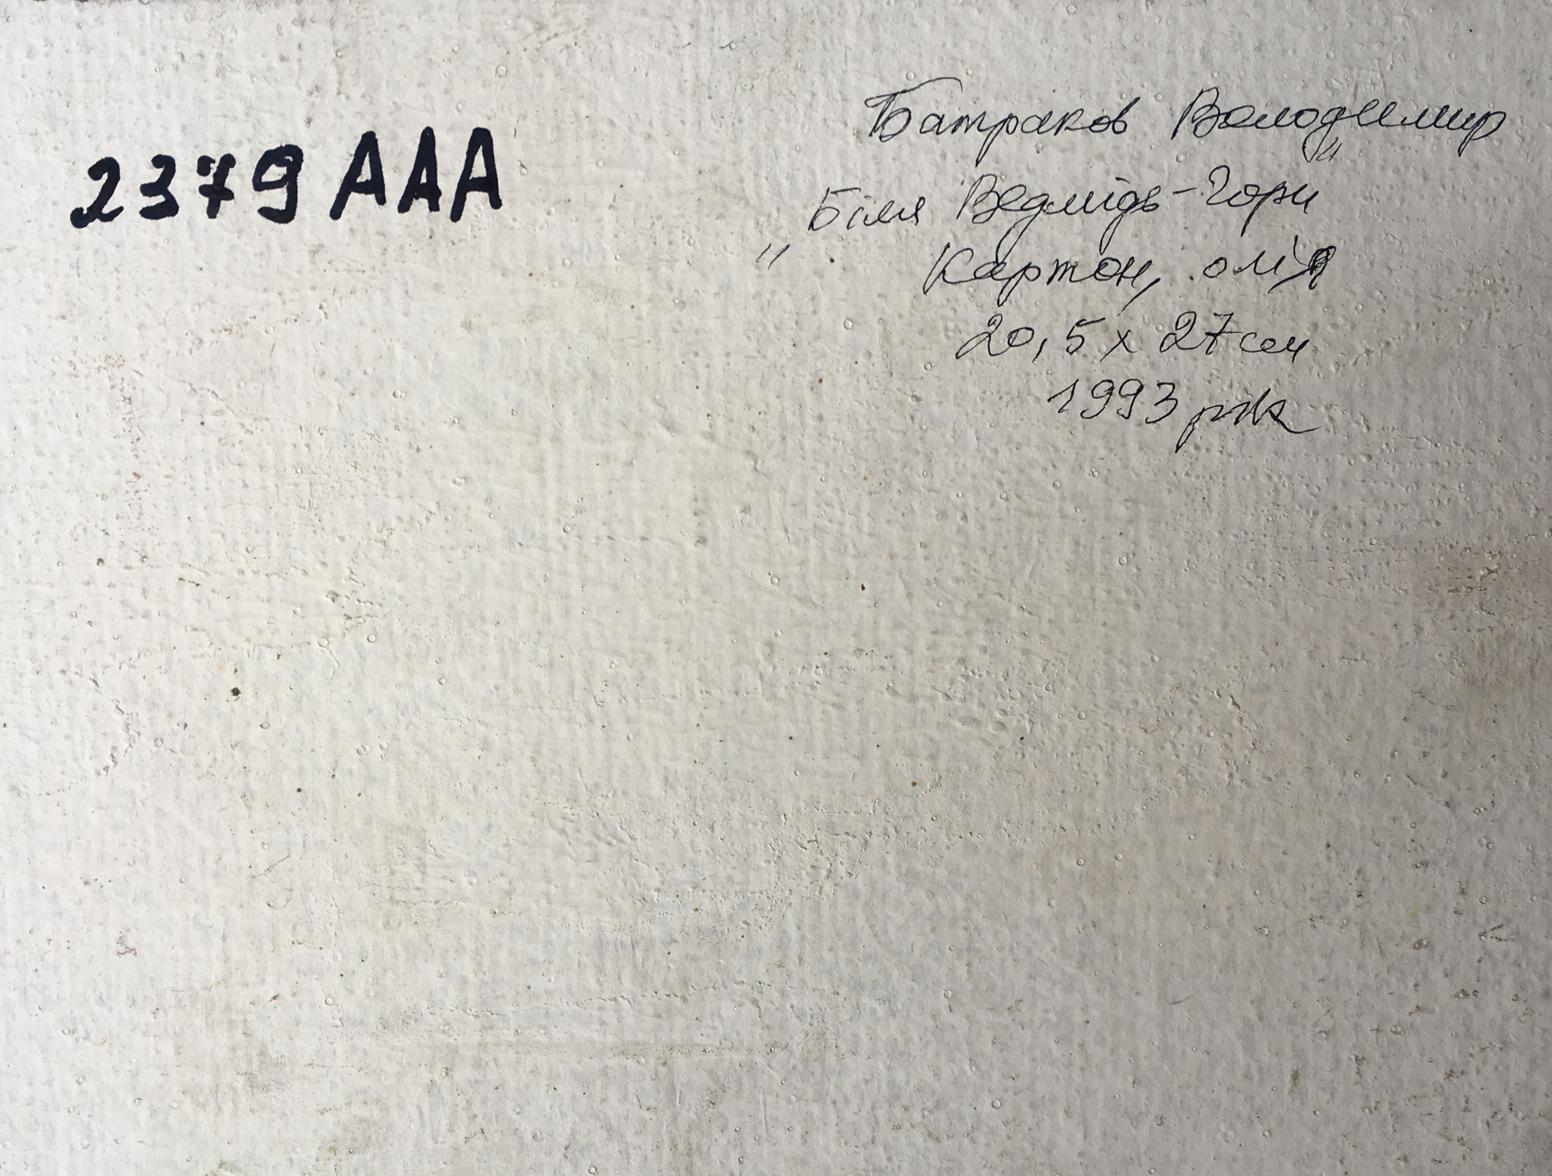 2379 AAA
Батраков Володимир
„Біля Ведмідь-Гори“
Картон, олія
20,5 x 27 см
1993 рік